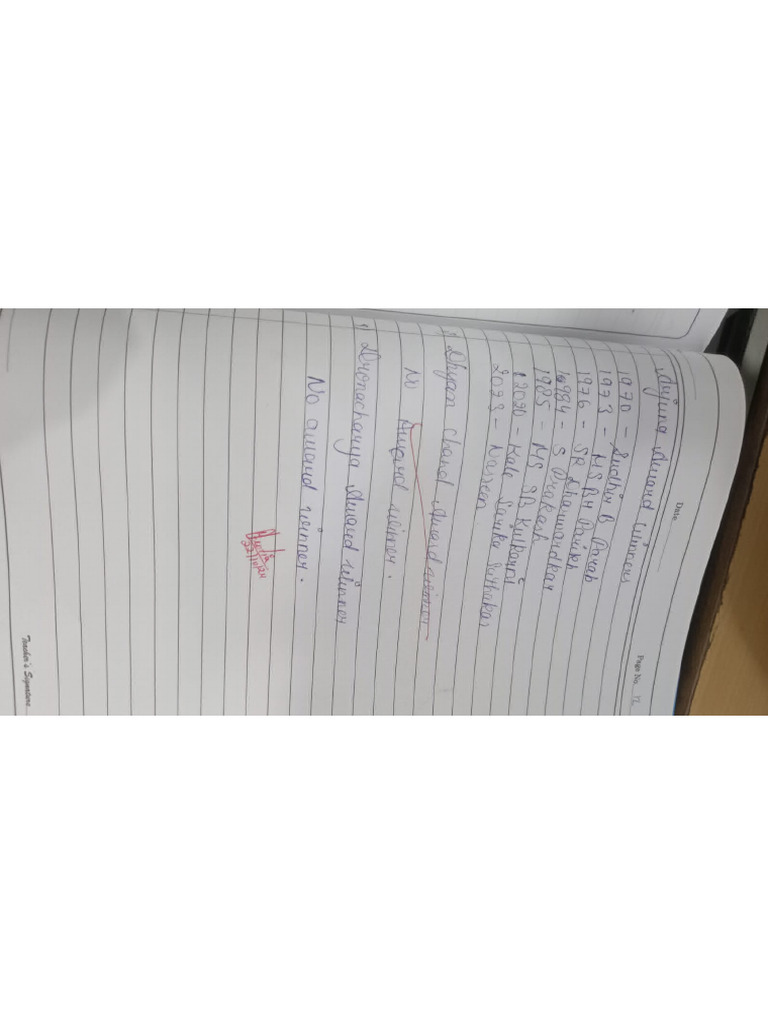 Date
Page No. 12
Arjuna Award Winners
1970 - Sudhir B Parab
1973 - MS BH Parikh
1976 - SR Dharwardkar
1984 - S Prakash
1985 - MS SB Kulkarni
2020 - Kale Sarika Sudhakar
2023 - Nasreen
Dhyan Chand Award winner
No Award winner.
Dronacharya Award winner
No award winner.
22/10/24
Teacher's Signature